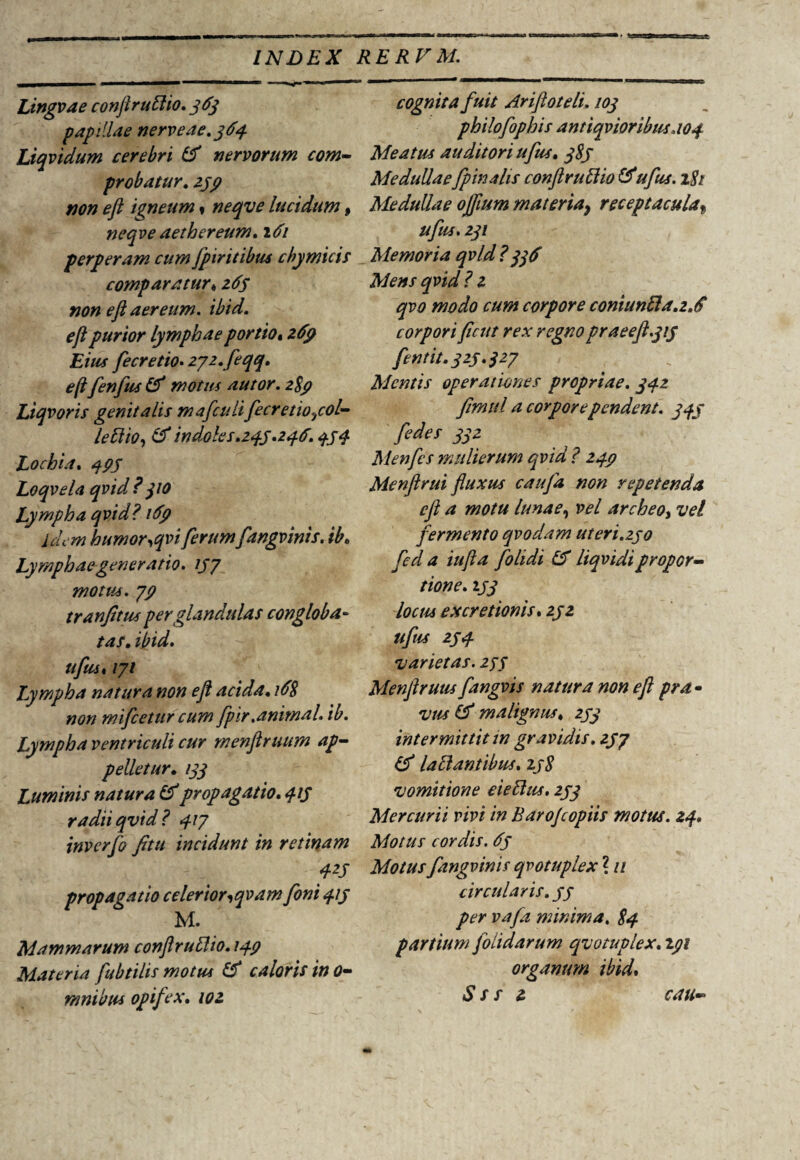 INDEX RERVM.
Lingvae conſtructio. 363
papillae nerveae. 364
Liqvidum cerebri & nervorum com-
probatur. 259
non eſt igneum, neqve lucidum,
neqve aethereum. 261
perperam cum ſpiritibus chymicis
comparatur. 265
non eſt aereum. ibid.
eſt purior lymphae portio. 269
Eius ſecretio. 272. ſeqq.
eſt ſenſus & motus autor. 289
Liqvoris genitalis maſculi ſecretio, col-
lectio, & indoles. 245. 246. 454
Lochia. 495
Loqvela qvid? 310
Lympha qvid? 169
idem humor, qvi ſerum ſangvinis. ib.
Lymphae generatio. 157
motus. 79
tranſitus per glandulas congloba-
tas. ibid.
uſus. 171
Lympha natura non eſt acida. 168
non miſcetur cum ſpir. animal. ib.
Lympha ventriculi cur menſtruum ap-
pelletur. 133
Luminis natura & propagatio. 415
radii qvid? 417
inverſo ſitu incidunt in retinam
425
propagatio celerior, qvam ſoni 415
M.
Mammarum conſtructio. 149
Materia ſubtilis motus & caloris in o-
mnibus opifex. 102
cognita fuit Ariſtoteli. 103
philoſophis antiqvioribus. 104
Meatus auditori uſus. 385
Medullae ſpinalis conſtructio & uſus. 281
Medullae oſſium materia, receptacula,
uſus. 231
Memoria qvid? 336
Mens qvid? 2
qvo modo cum corpore coniuncta. 2. 6
corpori ſicut rex regno praeeſt. 315
ſentit. 325. 327
Mentis operationes propriae. 342
ſimul a corpore pendent. 345
ſedes 332
Menſes mulierum qvid? 249
Menſtrui fluxus cauſa non repetenda
eſt a motu lunae, vel archeo, vel
fermento qvodam uteri. 250
ſed a iuſta ſolidi & liqvidi propor-
tione. 253
locus excretionis. 252
uſus 254
varietas. 255
Menſtruus ſangvis natura non eſt pra-
vus & malignus. 253
intermittit in gravidis. 257
& lactantibus. 258
vomitione eiectus. 253
Mercurii vivi in Baroſcopiis motus. 24.
Motus cordis. 65
Motus ſangvinis qvotuplex? 11
circularis. 55
per vaſa minima. 84
partium ſolidarum qvotuplex. 291
organum ibid.
Sſſ 2 cau-